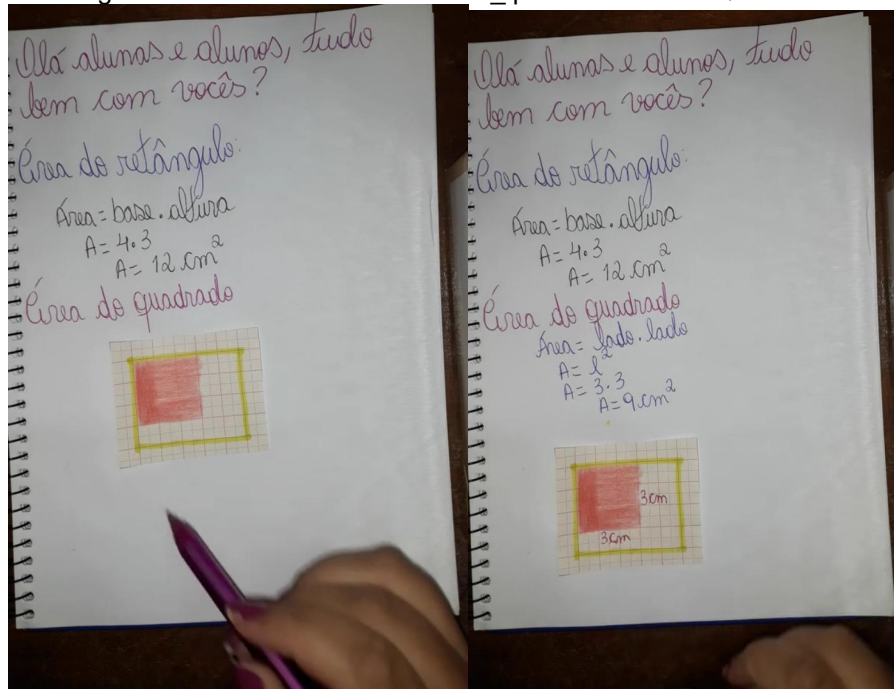 Olá alunas e alunos, tudo
bem com vocês?
Área do retângulo:
Área = base . altura
A = 4.3
A = 12 cm²
Área do quadrado
Olá alunas e alunos, tudo
bem com vocês?
Área do retângulo:
Área = base . altura
A = 4.3
A = 12 cm²
Área do quadrado
Área = lado . lado
A = l²
A = 3.3
A = 9 cm²
3cm
3cm